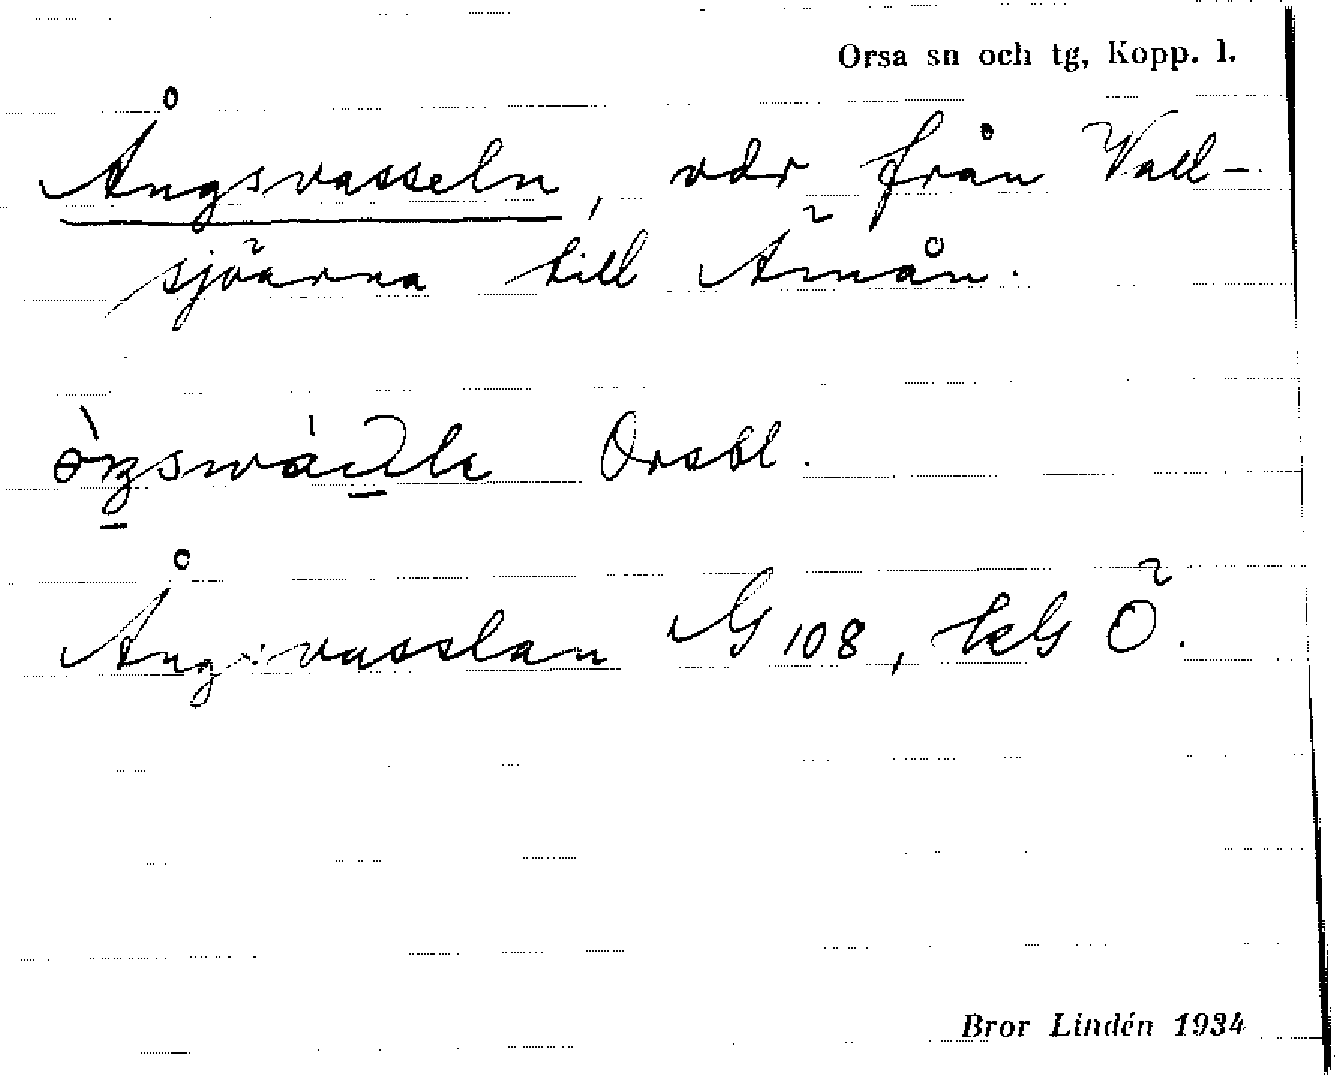 Orsa sn och tg, Kopp. l.
Ångsvasseln, vdr från Vall-
sjöarna till Ämån.
Orsbl.
Ångsvasslan G 108, kG Ö.
Bror Lindén 1934